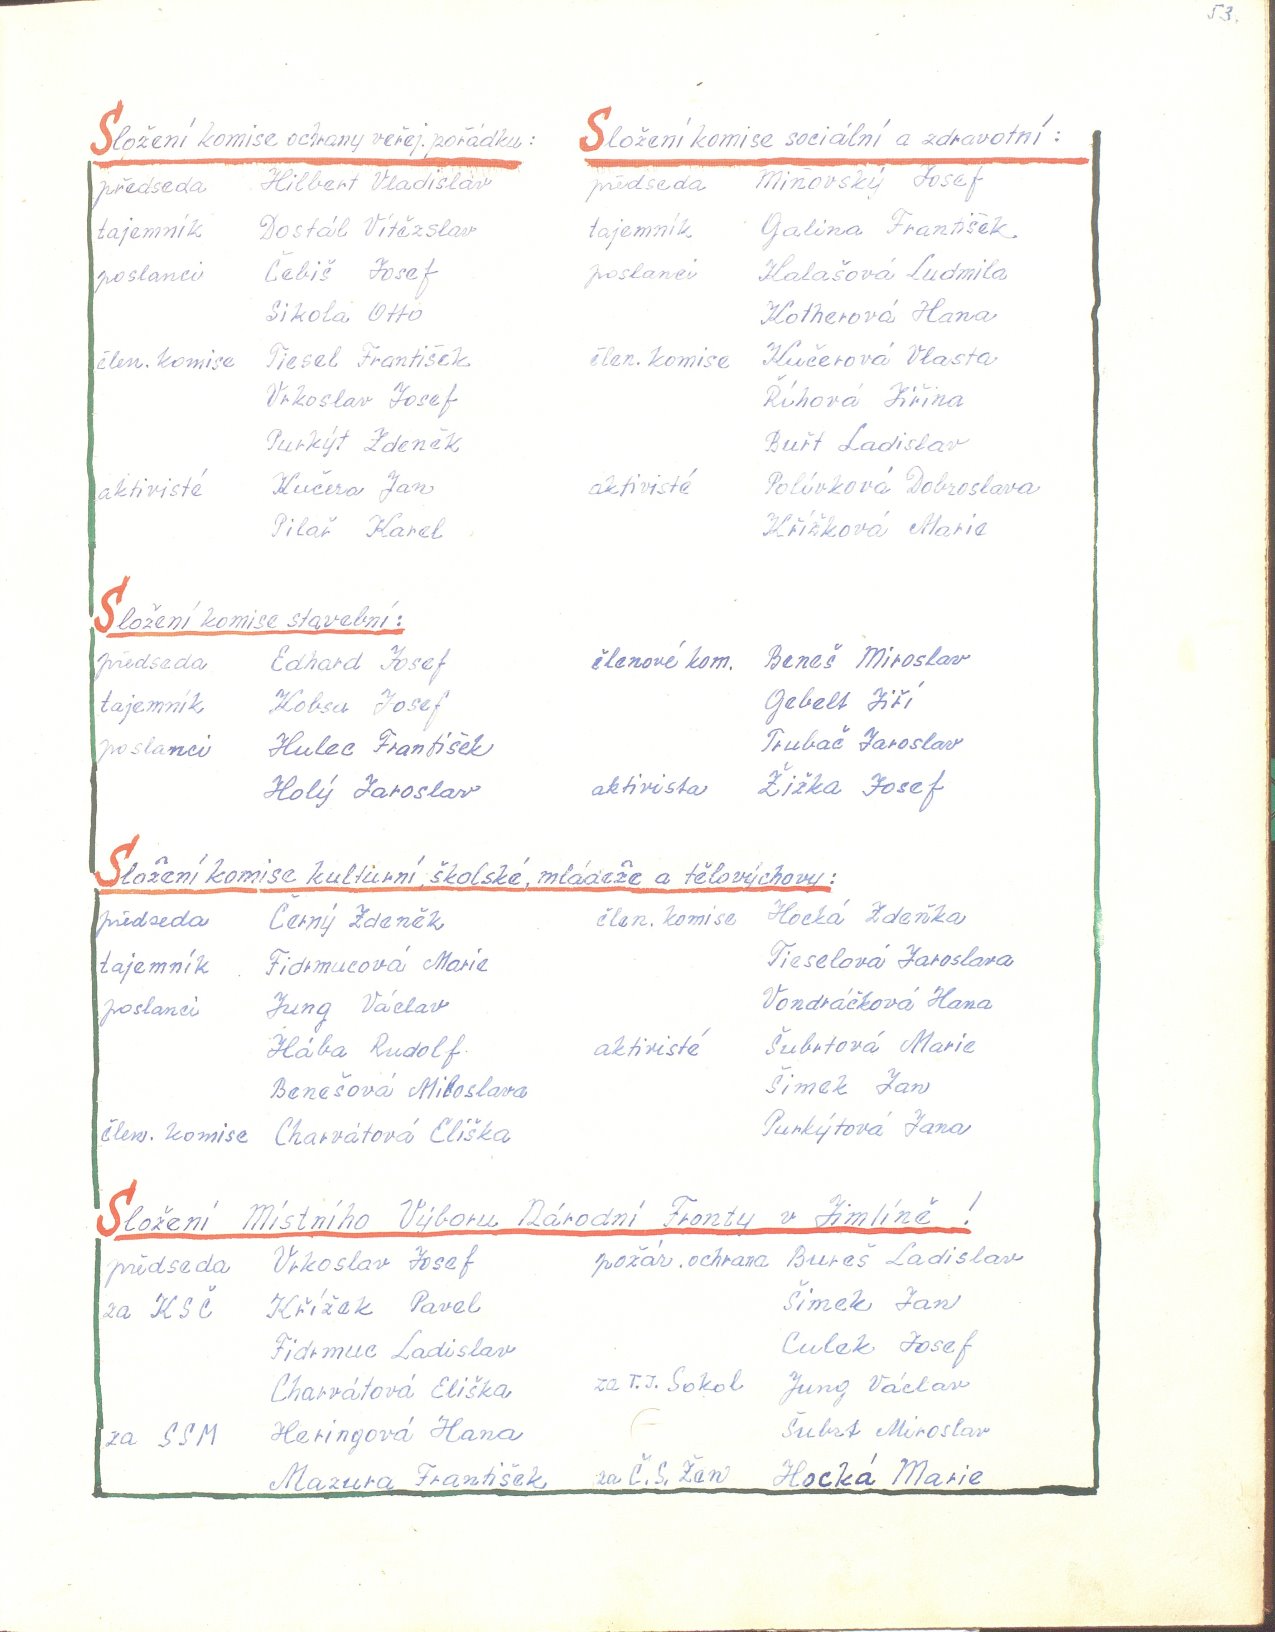 53.
Složení komise ochrany veřej. pořádku:
předseda Hilbert Vladislav
tajemník Dostál Vítězslav
poslanci Čebiš Josef
Sikola Otto
člen. komise Tiesel František
Vrkoslav Josef
Purkýt Zdeněk
aktivisté Kučera Jan
Pilař Karel
Složení komise sociální a zdravotní:
předseda Miňovský Josef
tajemník Galina František
poslanci Halašová Ludmila
Kotherová Hana
člen. komise Kučerová Vlasta
Říhová Jiřina
Buřt Ladislav
aktivisté Polívková Dobroslava
Křížková Marie
Složení komise stavební:
předseda Edhard Josef
tajemník Kobsa Josef
poslanci Hulec František
Holý Jaroslav
členové kom. Beneš Miroslav
Gebelt Jiří
Trubač Jaroslav
aktivista Žižka Josef
Složení komise kulturní, školské, mládeže a tělovýchovy:
předseda Černý Zdeněk
tajemník Fidrmucová Marie
poslanci Jung Václav
Hába Rudolf
Benešová Miloslava
člen. komise Charvátová Eliška
člen. komise Hocká Zdeňka
Tieselová Jaroslava
Vondráčková Hana
aktivisté Šubrtová Marie
Šimek Jan
Purkýtová Jana
Složení Místního Výboru Národní Fronty v Jimlíně!
předseda Vrkoslav Josef
za KSČ Křížek Pavel
Fidrmuc Ladislav
Charvátová Eliška
za SSM Heringová Hana
Mazura František
požár. ochrana Bureš Ladislav
Šimek Jan
Culek Josef
za T.J. Sokol Jung Václav
Šubrt Miroslav
za Č.S. Žen Hocká Marie